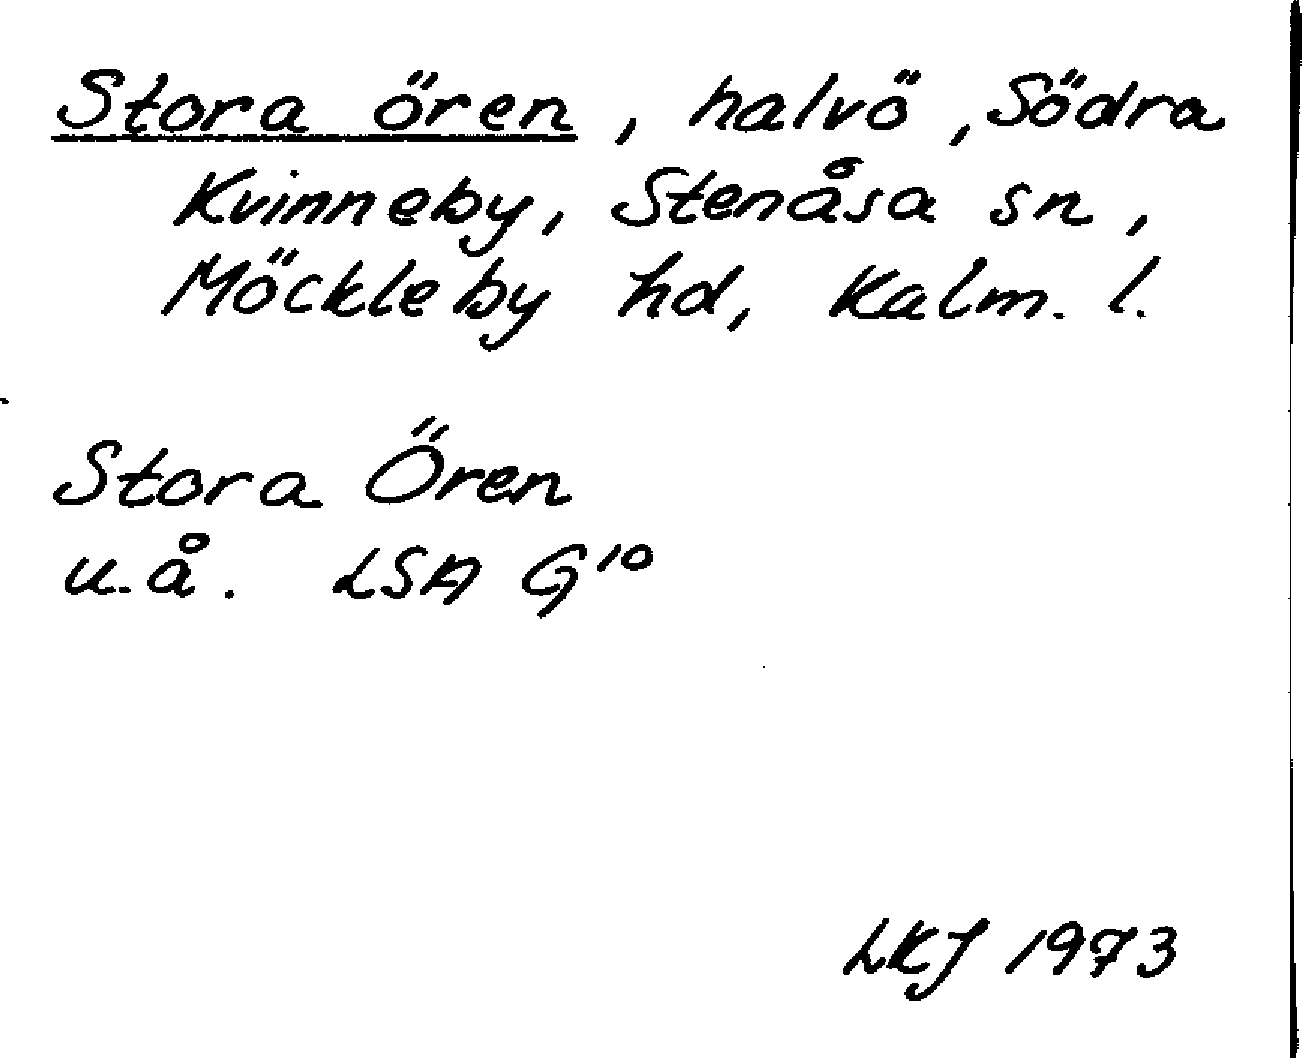 Stora ören, halvö, Södra
Kvinneby, Stenåsa sn,
Möckleby hd, Kalm. l.
Stora Ören
u.å. LSA G¹⁰
LKJ 1973